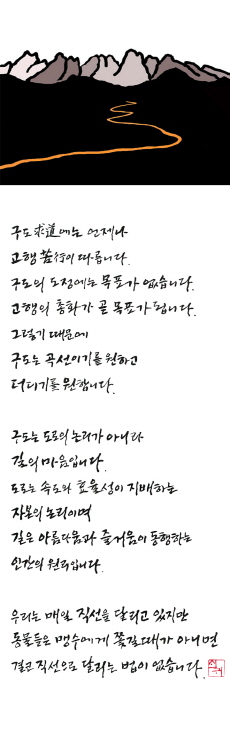 구도求道에는 언제나
고행苦行이 따릅니다.
구도의 도정에는 목표가 없습니다.
고행의 총화가 곧 목표가 됩니다.
그렇기 때문에
구도는 곡선이기를 원하고
더디기를 원합니다.
구도는 도로의 논리가 아니라
길의 마음입니다.
도로는 속도와 효율성이 지배하는
자본의 논리이며
길은 아름다움과 즐거움이 동행하는
인간의 원리입니다.
우리는 매일 직선을 달리고 있지만
동물들은 맹수에게 쫓길때가 아니면
결코 직선으로 달리는 법이 없습니다.